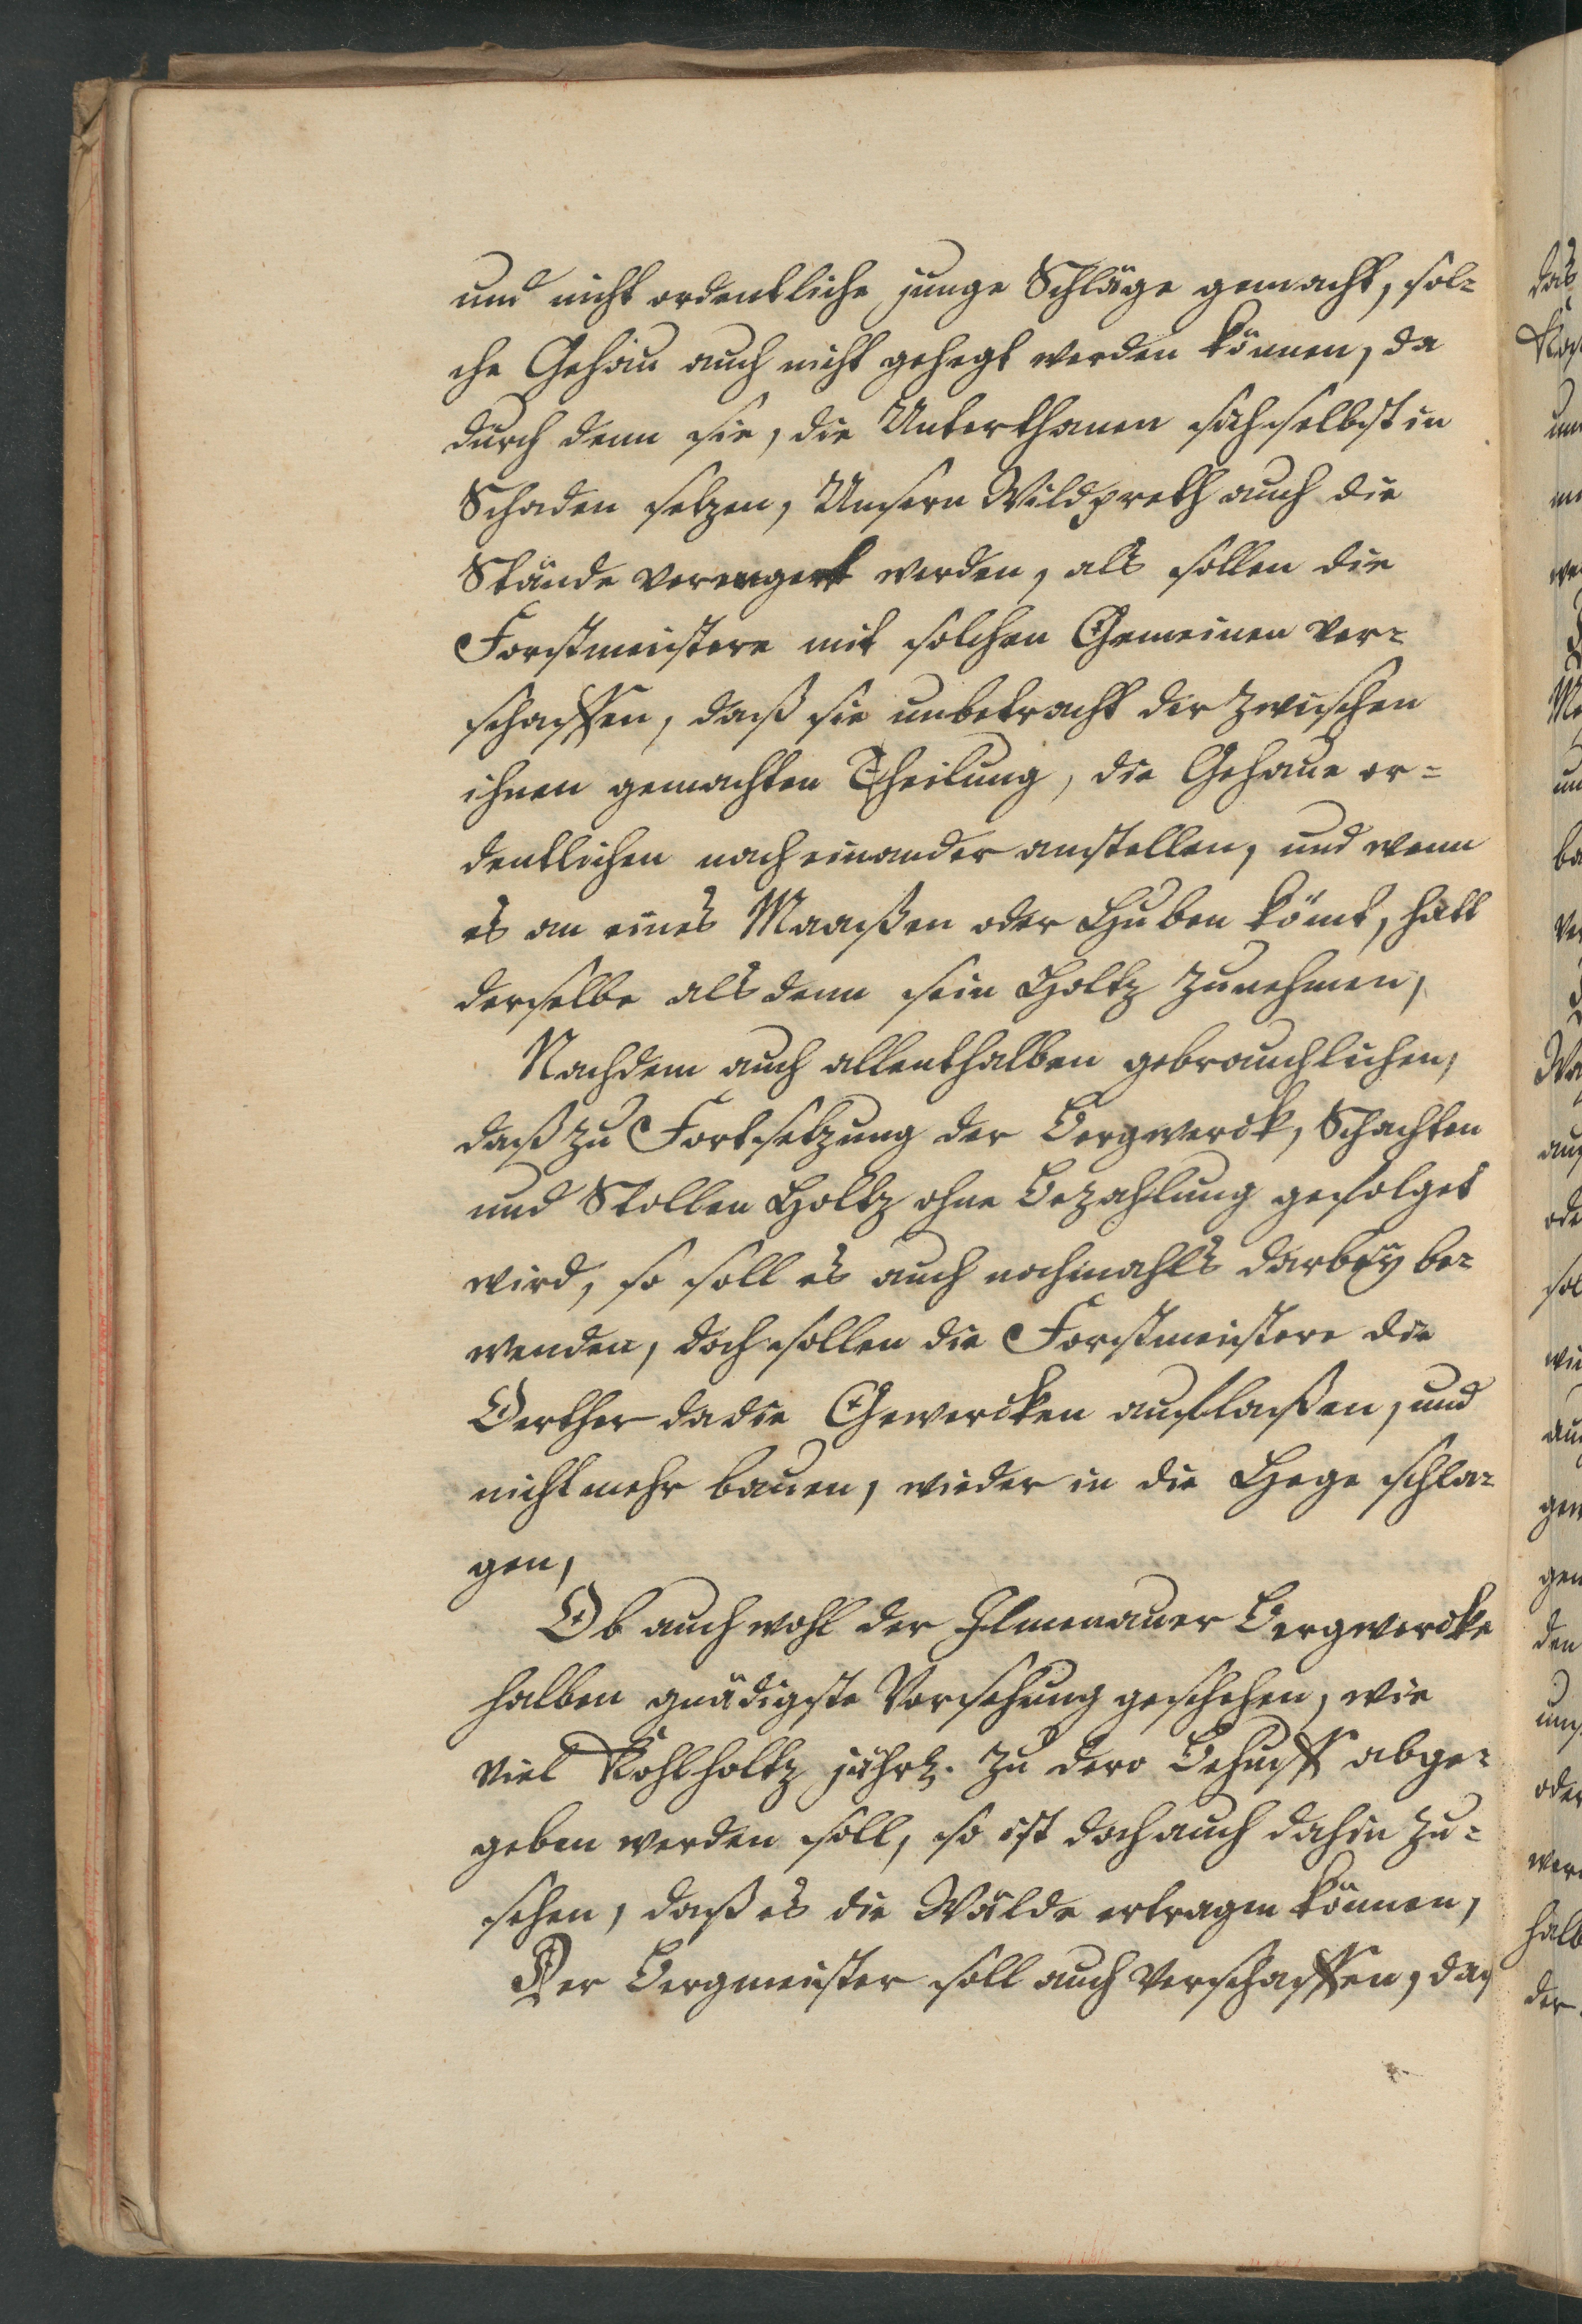 und nicht ordentliche junge Schläge gemacht, sol-
che Gehäu auch nicht gehegt werden können, da
durch denn sie, die Unterthanen sich selbst in
Schaden setzen, Unsern Wildpreth auch die
Stände verengert werden, als sollen die
Forstmeistere mit solchen Gemeinen ver-
schaffen, daß sie unbetracht der zwischen
ihnen gemachten Theilung, die Gehaue or-
dentlichen nach einander anstellen, und wenn
es an eines Maaßen oder Huben kömt, hatt
derselbe als denn sein Holtz zunehmen,
Nachdem auch allenthalben gebrauchlichen,
daß zu Fortsetzung der Bergwerck, Schachten
und Stollen Holtz ohne Bezahlung gefolget
wird, so soll es auch nochmahls darbey be-
wenden, doch sollen die Forstmeistere die
Oerther da die Gewercken auflaßen, und
nicht mehr bauen, wieder in die Hege schla-
gen,
Ob auch wohl der Ilmenauer Bergwercke
halben gnädigste Vorsehung geschehen, wie
viel Kohlholtz jährl. zu dero Behuff abge-
geben werden soll, so ist doch auch dahin zu-
sehen, daß es die Wälde ertragen können,
Der Bergmeister soll auch verschaffen, daß